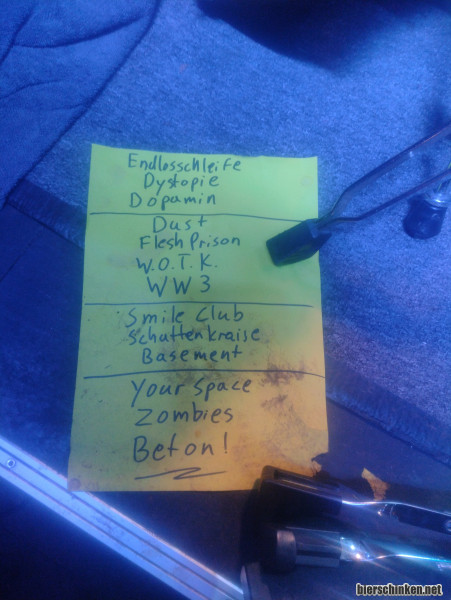 Endlosschleife
Dystopie
Dopamin
Dust
Flesh Prison
W.O.T.K.
WW3
Smile Club
Schattenkraise
Basement
Your Space
Zombies
Beton!
bierschinken.net